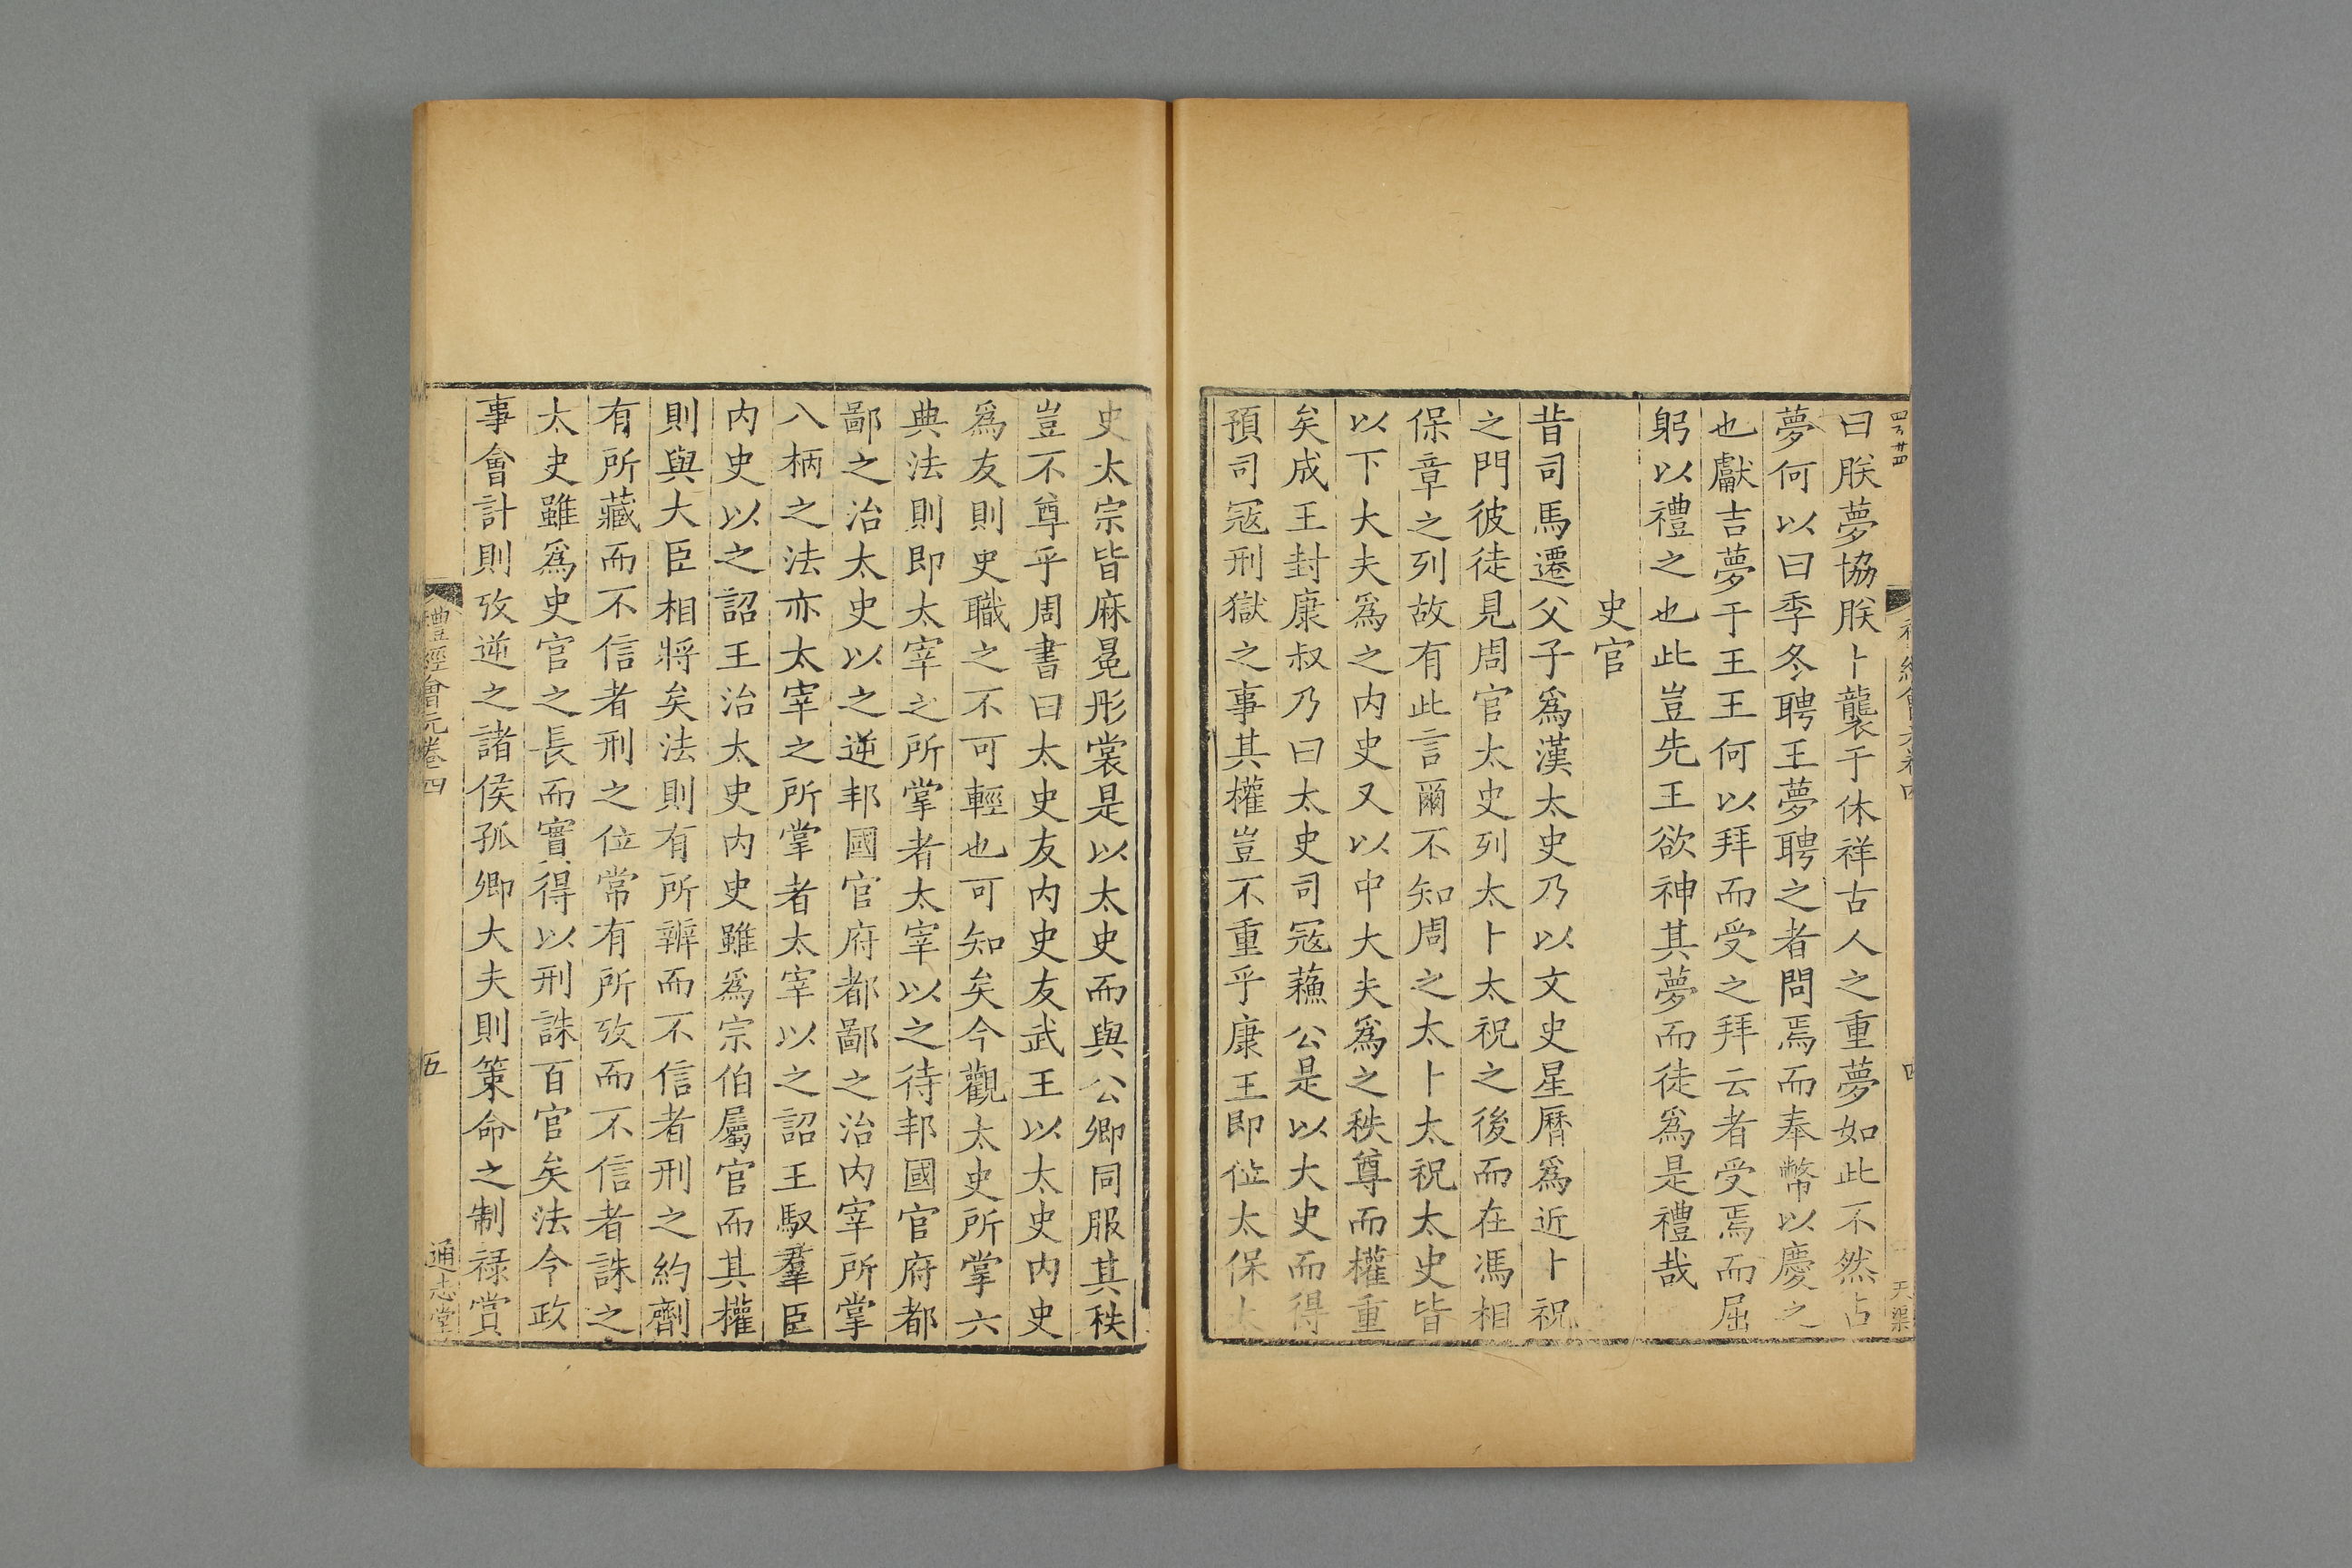 曰朕夢協朕卜襲于休祥古人之重夢如此不然占
夢何以曰季冬聘王夢聘之者問焉而奉幣以慶之
也獻吉夢于王王何以拜而受之拜云者受焉而屈
躬以禮之也此豈先王欲神其夢而徒爲是禮哉
史官
昔司馬遷父子爲漢太史乃以文史星曆爲近卜祝
之門彼徒見周官太史列太卜太祝之後而在馮相
保章之列故有此言爾不知周之太卜太祝太史皆
以下大夫爲之内史又以中大夫爲之秩尊而權重
矣成王封康叔乃曰太史司冦蘓公是以大史而得
預司冦刑獄之事其權豈不重乎康王即位太保太
史太宗皆麻冕彤裳是以太史而與公卿同服其秩
豈不尊乎周書曰太史友内史友武王以太史内史
爲友則史職之不可輕也可知矣今觀太史所掌六
典法則即太宰之所掌者太宰以之待邦國官府都
鄙之治太史以之逆邦國官府都鄙之治内宰所掌
八柄之法亦太宰之所掌者太宰以之詔王馭羣臣
内史以之詔王治太史内史雖爲宗伯屬官而其權
則與大臣相將矣法則有所辨而不信者刑之約劑
有所藏而不信者刑之位常有所攷而不信者誅之
太史雖爲史官之長而實得以刑誅百官矣法令政
事會計則攷逆之諸侯孤卿大夫則策命之制禄賞
禮經會元卷四
五
通志堂